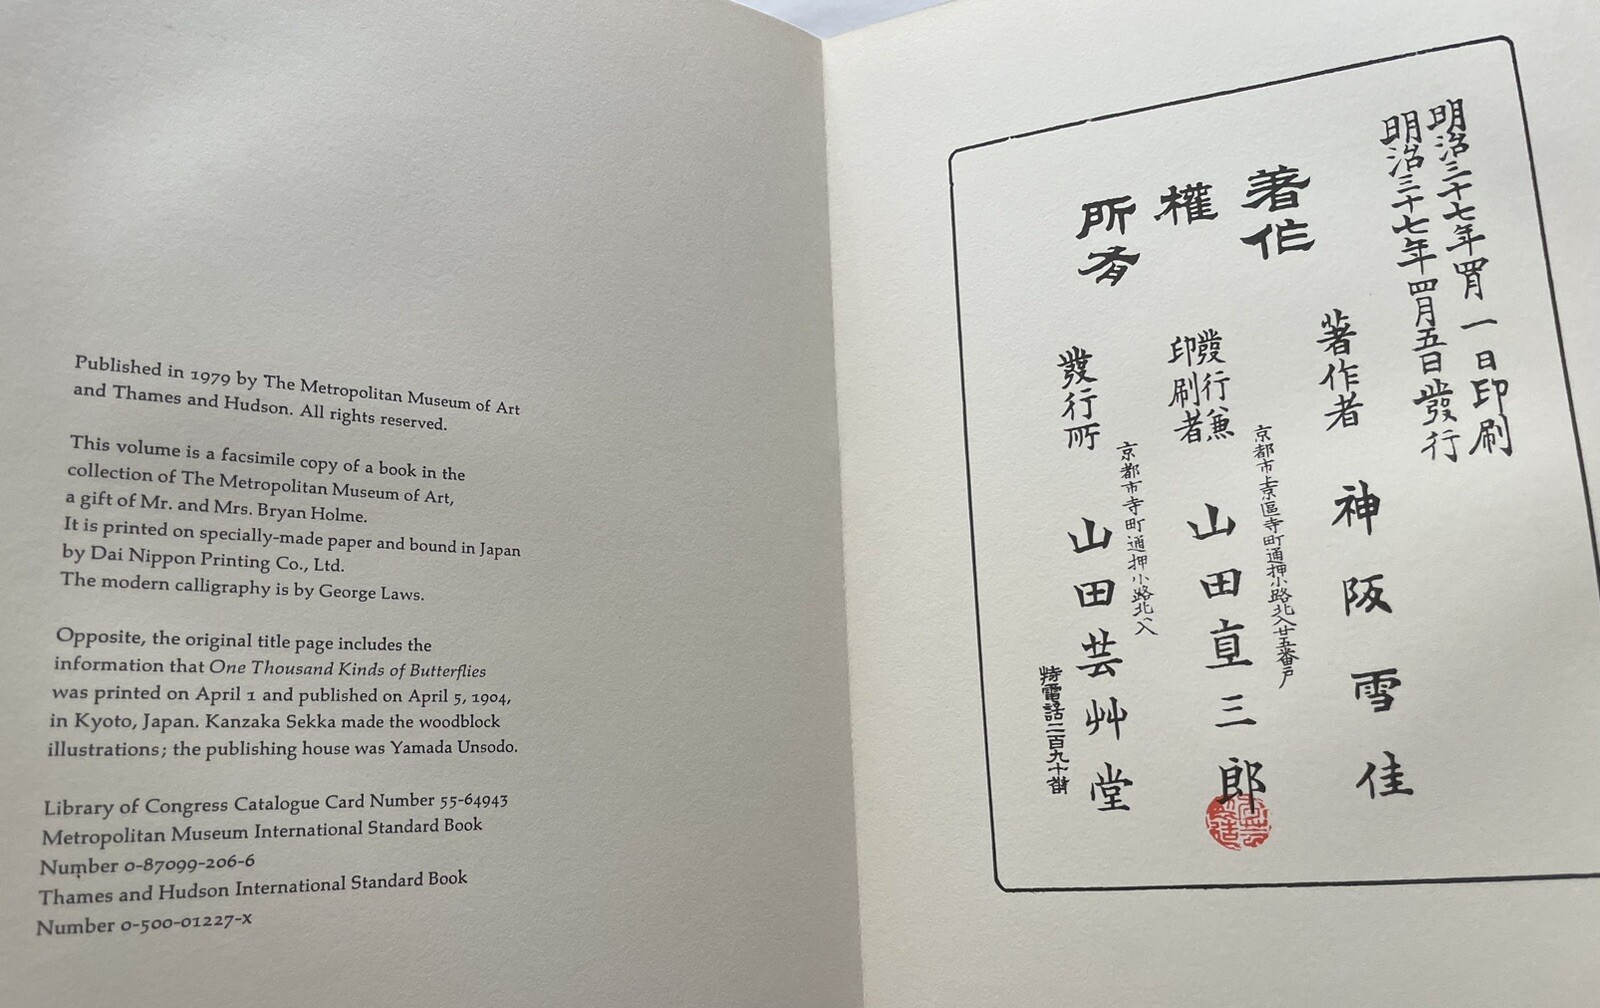 Published in 1979 by The Metropolitan Museum of Art
and Thames and Hudson. All rights reserved.
This volume is a facsimile copy of a book in the
collection of The Metropolitan Museum of Art,
a gift of Mr. and Mrs. Bryan Holme.
It is printed on specially-made paper and bound in Japan
by Dai Nippon Printing Co., Ltd.
The modern calligraphy is by George Laws.
Opposite, the original title page includes the
information that One Thousand Kinds of Butterflies
was printed on April 1 and published on April 5, 1904,
in Kyoto, Japan. Kanzaka Sekka made the woodblock
illustrations; the publishing house was Yamada Unsodo.
Library of Congress Catalogue Card Number 55-64943
Metropolitan Museum International Standard Book
Number 0-87099-206-6
Thames and Hudson International Standard Book
Number 0-500-01227-x
明治三十七年四月一日印刷
明治三十七年四月五日發行
著作
權
所有
著作者 神阪雪佳
京都市上京區寺町通押小路北入廿五番戸
發行兼
印刷者 山田直三郎
京都市寺町通押小路北入
發行所 山田芸艸堂
特電話二百九十番